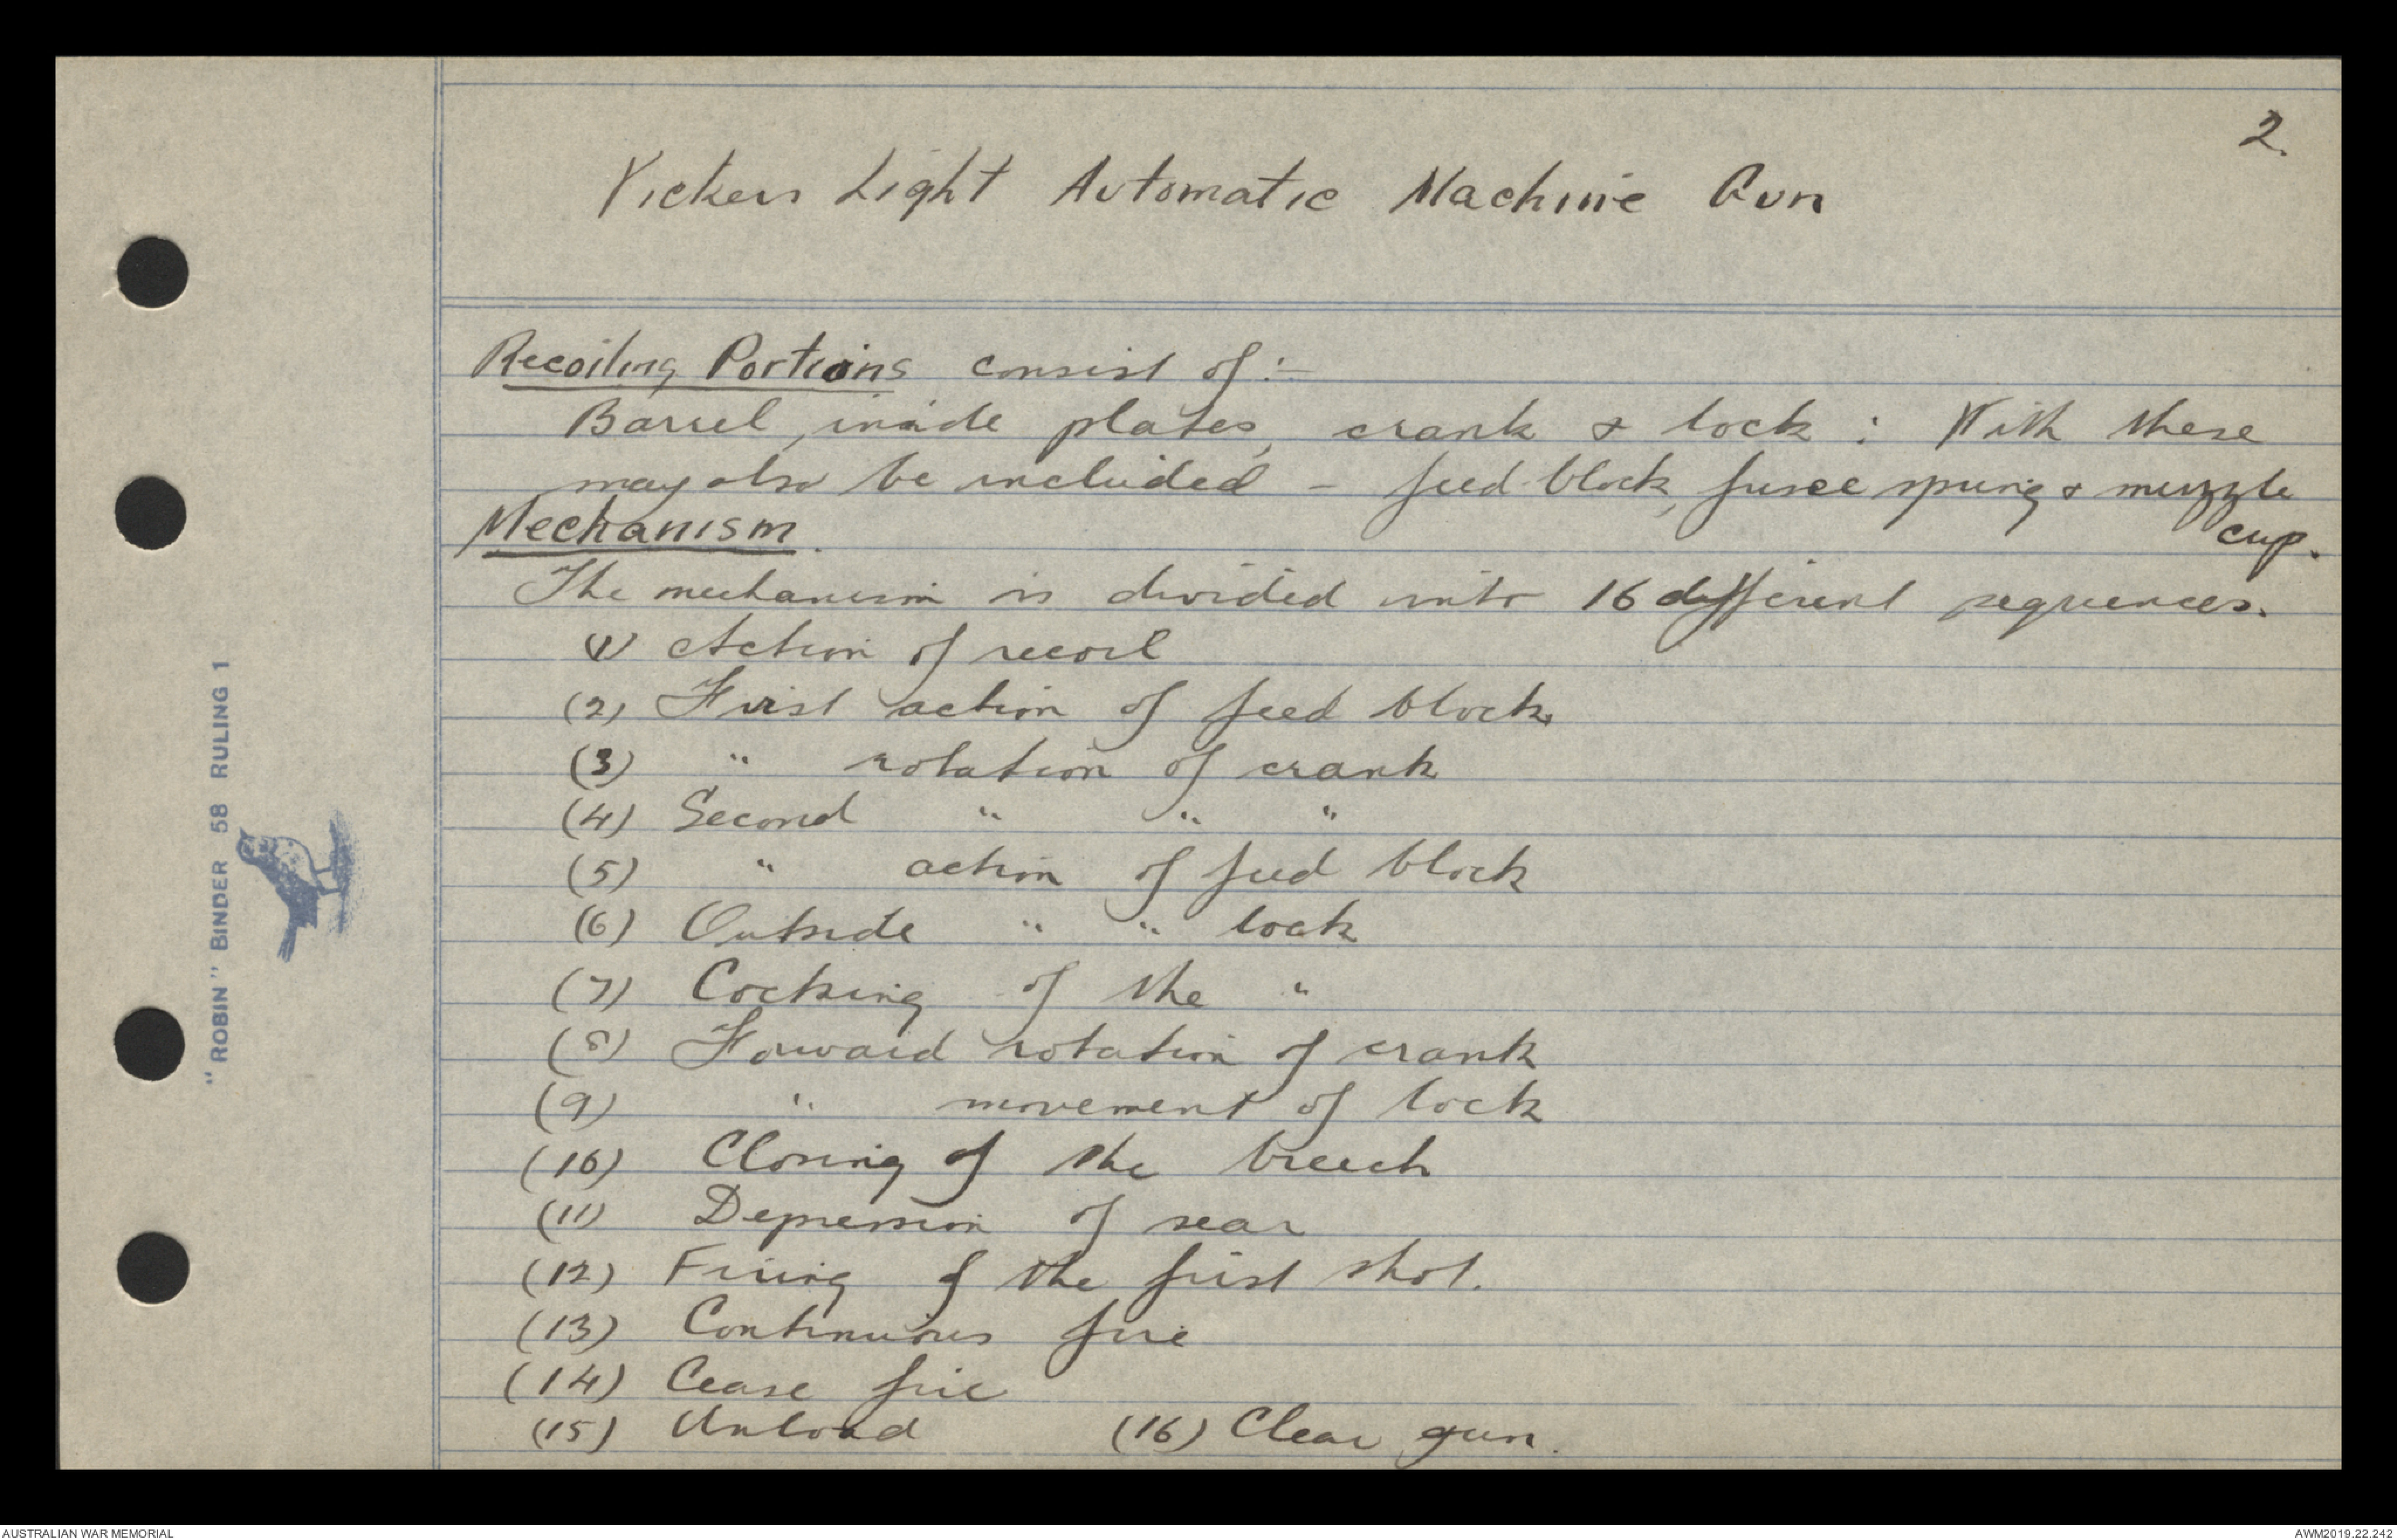 2.
Vickers Light Automatic Machine Gun
Recoiling Portions consist of :-
Barrel, inside plates, crank & lock : With these
may also be included - feed-block, fusee spring & muzzle
cup.
Mechanism.
The mechanism is divided into 16 different sequences.
(1) Action of recoil
(2) First action of feed block.
(3) " rotation of crank
(4) Second " " "
(5) " action of feed block
(6) Outside " " lock
(7) Cocking of the "
(8) Forward rotation of crank
(9) " movement of lock
(10) Closing of the breech
(11) Depression of sear
(12) Firing of the first shot.
(13) Continuous fire
(14) Cease fire
(15) Unload (16) Clear gun.
"ROBIN" BINDER 58 RULING 1
AUSTRALIAN WAR MEMORIAL
AWM2019.22.242